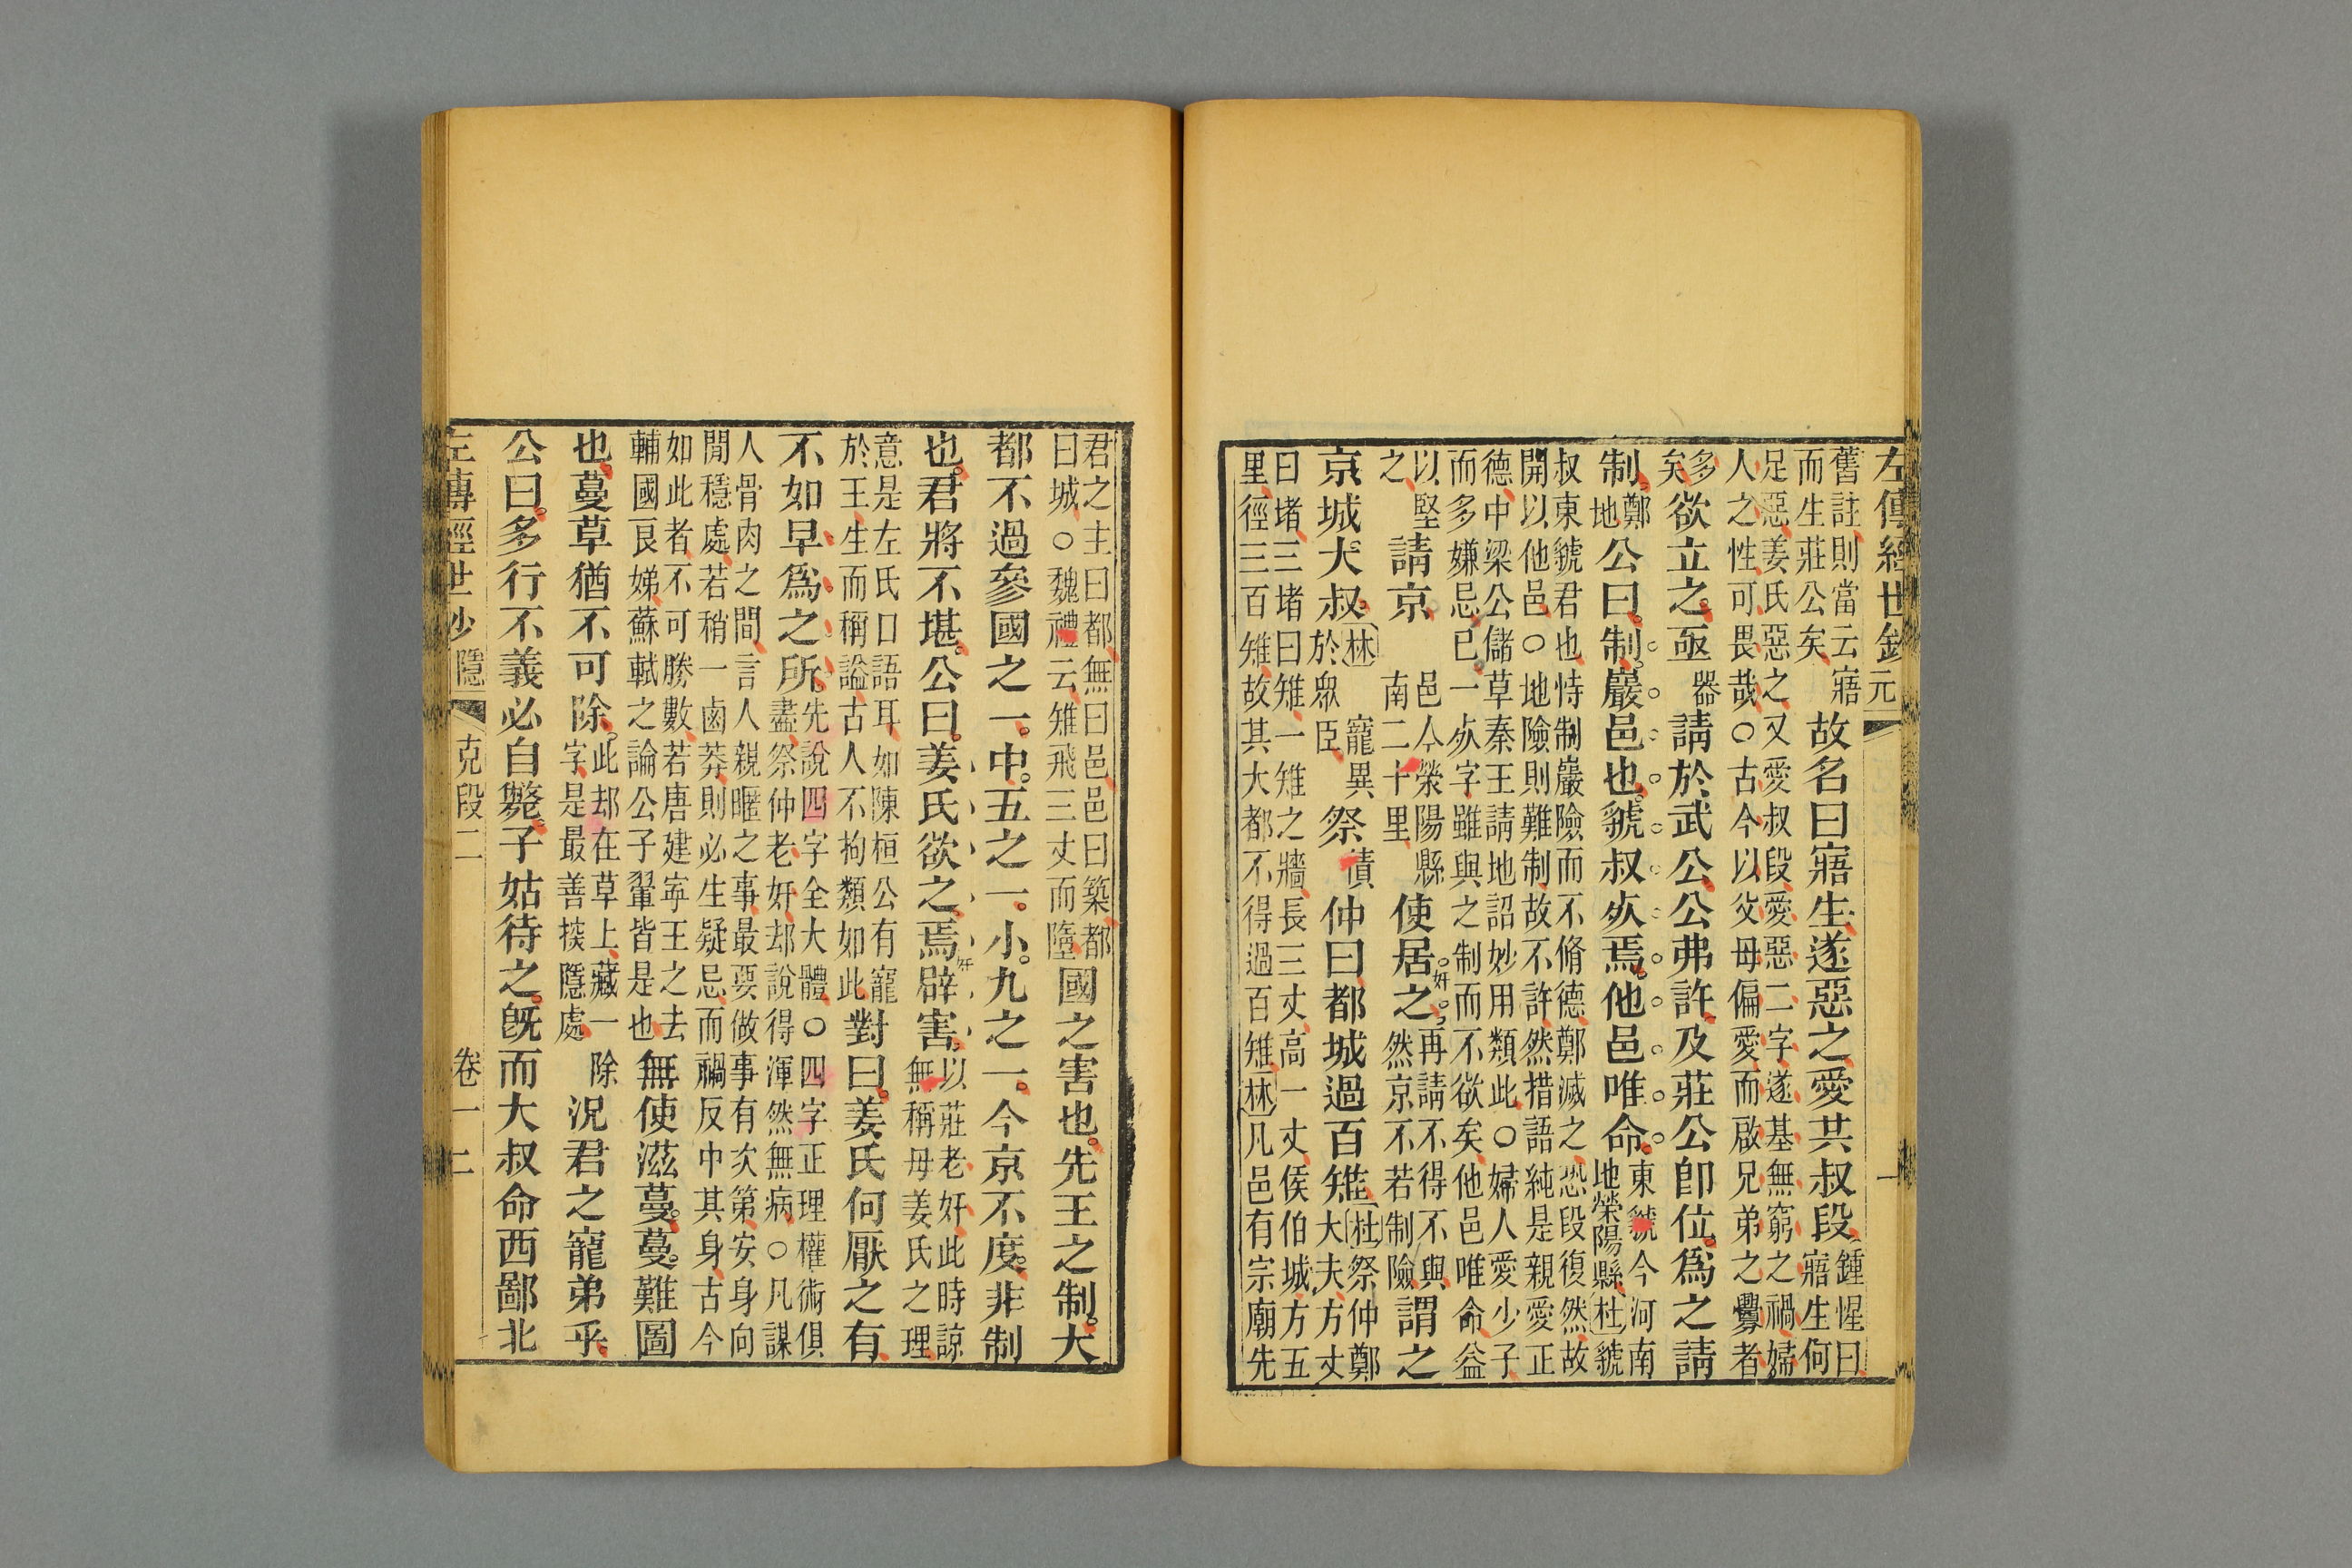 左傳經世鈔 元 一
舊註則當云寤
而生莊公矣
故名曰寤生遂惡之愛共叔段
鍾惺曰
寤生何
足惡姜氏惡之又愛叔段愛惡二字遂基無窮之禍婦
人之性可畏哉○古今以父母偏愛而啟兄弟之釁者
多
矣
欲立之亟
器
請於武公公弗許及莊公卽位爲之請
制
鄭
地
公曰制巖邑也虢叔死焉他邑唯命
東虢今河南
地滎陽縣杜虢
叔東虢君也恃制巖險而不脩德鄭滅之恐段復然故
開以他邑○地險則難制故不許然措語純是親愛正
德中梁公儲草秦王請地詔妙用類此○婦人愛少子
而多嫌忌已一死字雖與之制而不欲矣他邑唯命益
以堅
之
請京
邑今滎陽縣
南二十里
使居之
奸
再請不得不與
然京不若制險
謂之
京城大叔
林 寵異
於眾臣
祭
債
仲曰都城過百雉
杜祭仲鄭
大夫方丈
曰堵三堵曰雉一雉之牆長三丈高一丈侯伯城方五
里徑三百雉故其大都不得過百雉林凡邑有宗廟先
君之主曰都無曰邑邑曰築都
曰城○魏禮云雉飛三丈而墮
國之害也先王之制大
都不過參國之一中五之一小九之一今京不度非制
也君將不堪公曰姜氏欲之焉辟害
奸
以莊老奸此時諒
無稱母姜氏之理
意是左氏口語耳如陳桓公有寵
於王生而稱謚古人不拘類如此
對曰姜氏何厭之有
不如早爲之所
先說四字全大體○四字正理權術俱
盡祭仲老奸却說得渾然無病○凡謀
人骨肉之間言人親暱之事最要做事有次第安身向
閒穩處若稍一鹵莽則必生疑忌而禍反中其身古今
如此者不可勝數若唐建寧王之去
輔國艮娣蘇軾之論公子翬皆是也
無使滋蔓蔓難圖
也蔓草猶不可除
此却在草上藏一除
字是最善揆隱處
況君之寵弟乎
公曰多行不義必自斃子姑待之旣而大叔命西鄙北
左傳經世鈔 隱 克段二 卷一 二